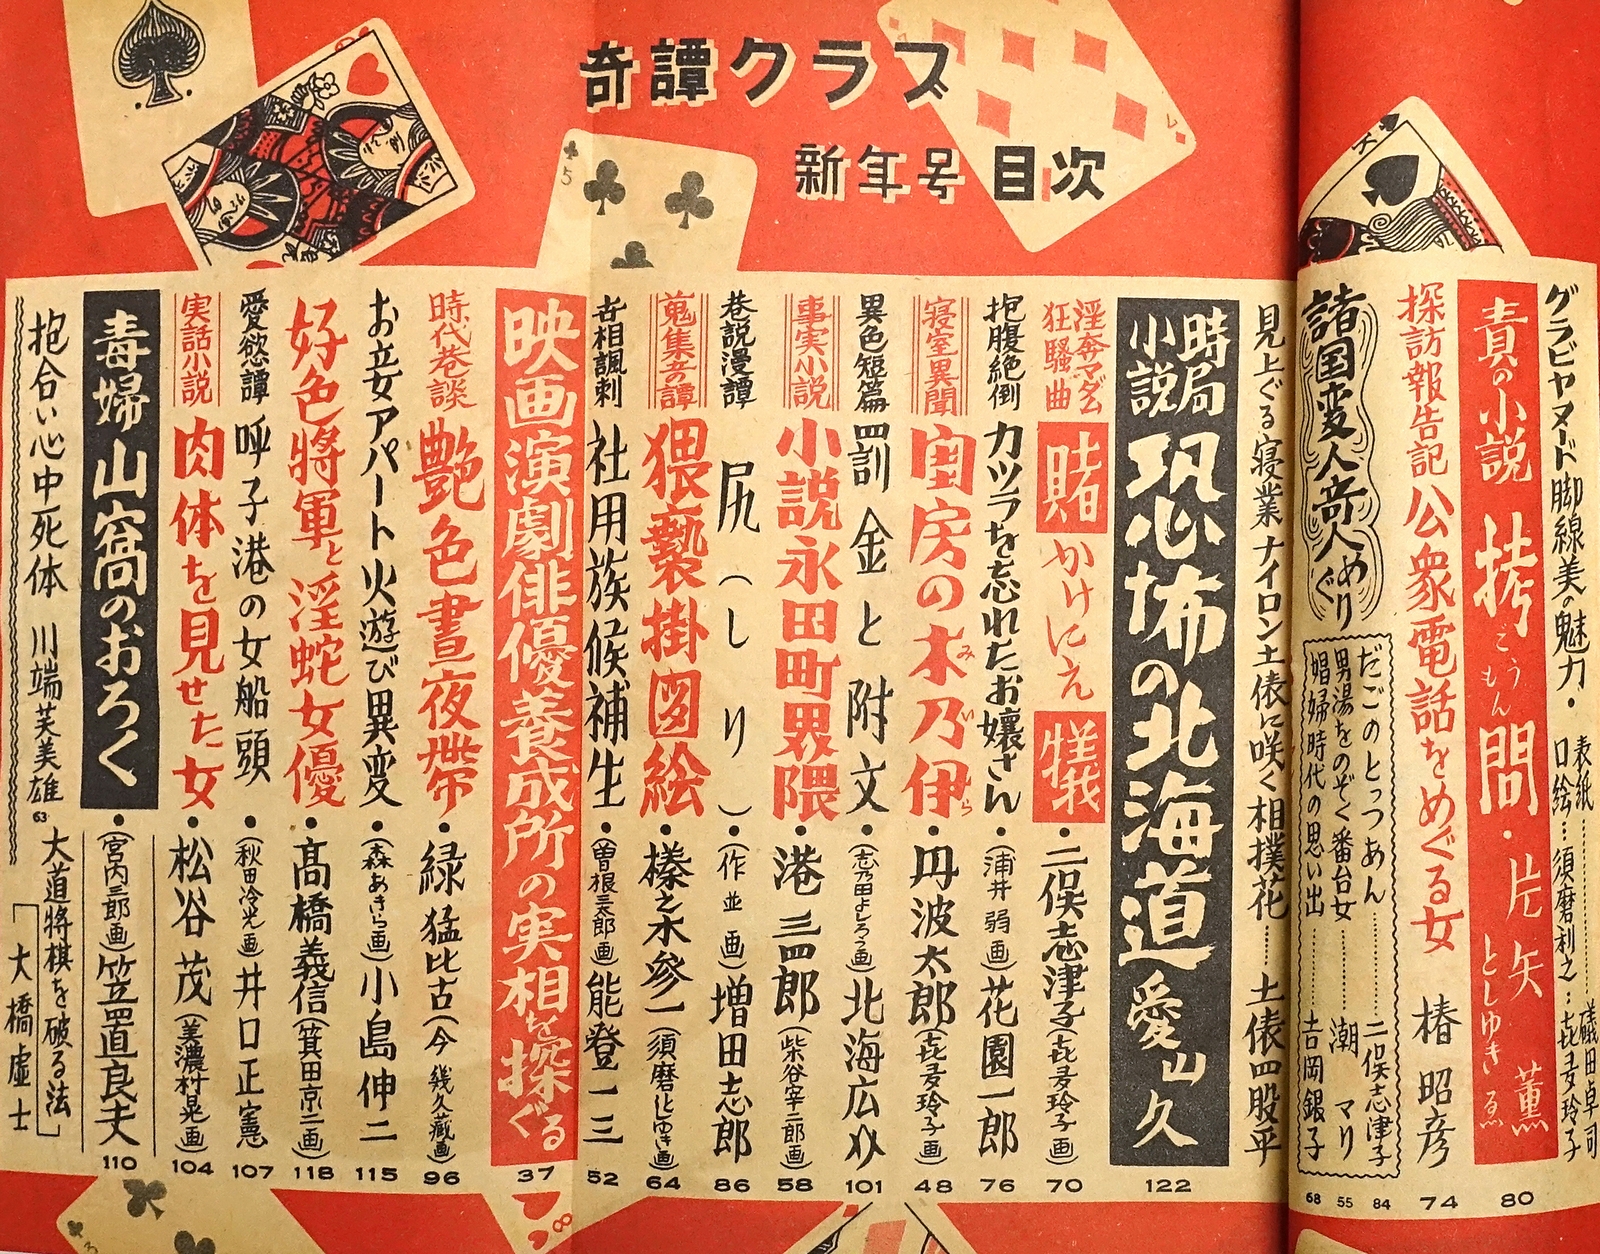 奇譚クラブ
新年号 目次
グラビヤヌード脚線美の魅力・
表紙……磯田卓司
口絵…須磨利之…喜多玲子
責の小説 拷問・片矢 薫
ごうもん としゆき ゑ 80
探訪報告記 公衆電話をめぐる女 椿 昭彦 74
諸国変人奇人めぐり
だごのとっつあん……二俣志津子 84
男湯をのぞく番台女……潮 マリ 55
娼婦時代の思い出……吉岡銀子 68
見上ぐる寝業ナイロン土俵に咲く相撲花……土俵四股平
時局小説 恐怖の北海道 愛山久 122
淫奔マダム狂騒曲 賭かけにえ犠・二俣志津子(喜多玲子画) 70
抱腹絶倒 カツラを忘れたお嬢さん・(浦井 弱画)花園一郎 76
寝室異聞 閨房の木乃伊・丹波太郎(喜多玲子画) 48
みいら
異色短篇 罰金と附文・(志乃田よしろう画)北海広 101
事実小説 小説永田町界隈・港 三四郎(柴谷宰二郎画) 58
巷説漫譚 尻(しり)・(作並画)増田志郎 86
蒐集奇譚 猥褻掛図絵・榛之木参一(須磨としゆき画) 64
世相諷刺 社用族候補生・(曽根三太郎画)能登一三 52
映画演劇俳優養成所の実相を探ぐる 37
時代巷談 艶色晝夜帶・緑 猛比古(今 幾久蔵画) 96
お妾アパート火遊び異変・(森あきら画)小島伸二 115
好色將軍と淫蛇女優・高橋義信(箕田京二画) 118
愛慾譚 呼子港の女船頭・(秋田冷光画)井口正憲 107
実話小説 肉体を見せた女・松谷 茂(美濃村晃画) 104
毒婦山窩のおろく・(宮内三郎画)笠置良夫 110
抱合い心中死体 川端芙美雄 63
大道將棋を破る法 大橋虚士